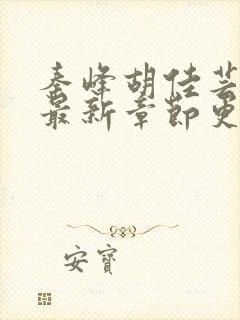 秦峰胡佳芸
最新章节更
安寶